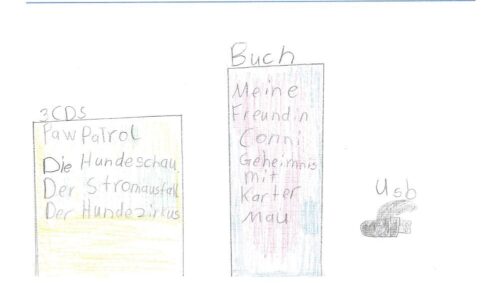 3CDS
PawPatrol
Die Hundeschau
Der Stromausfall
Der Hundezirkus
Buch
Meine
Freundin
Conni
Geheimnis
mit
Karter
Mau
Usb